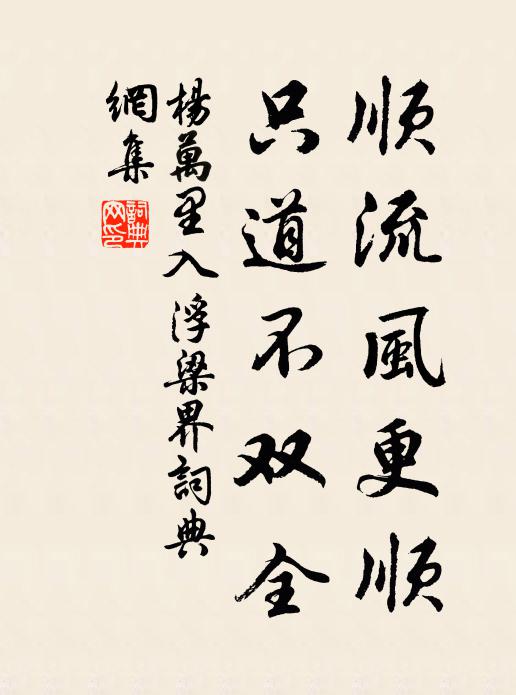 順流風更順
只道不双全
楊萬里入浮梁界詞典
網集
詞典網印